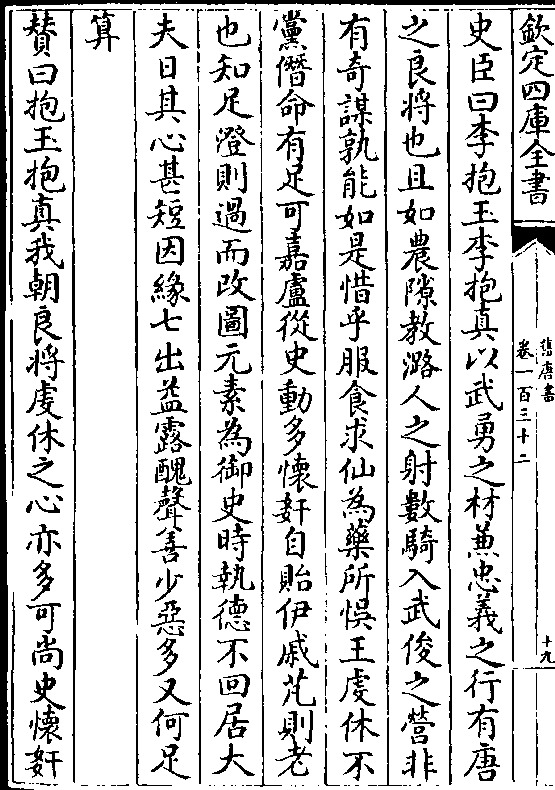 欽定四庫全書
舊唐書
卷一百三十二
十九
史臣曰李抱玉李抱真以武勇之材兼忠義之行有唐
之良將也且如農隙教潞人之射數騎入武俊之營非
有奇謀孰能如是惜乎服食求仙為藥所悞王虔休不
黨僭命有足可嘉盧從史動多懷奸自貽伊戚芃則老
也知足澄則過而改圖元素為御史時執德不回居大
夫日其心甚短因緣七出益露醜聲善少惡多又何足
算
賛曰抱玉抱真我朝良將虔休之心亦多可尚史懷奸